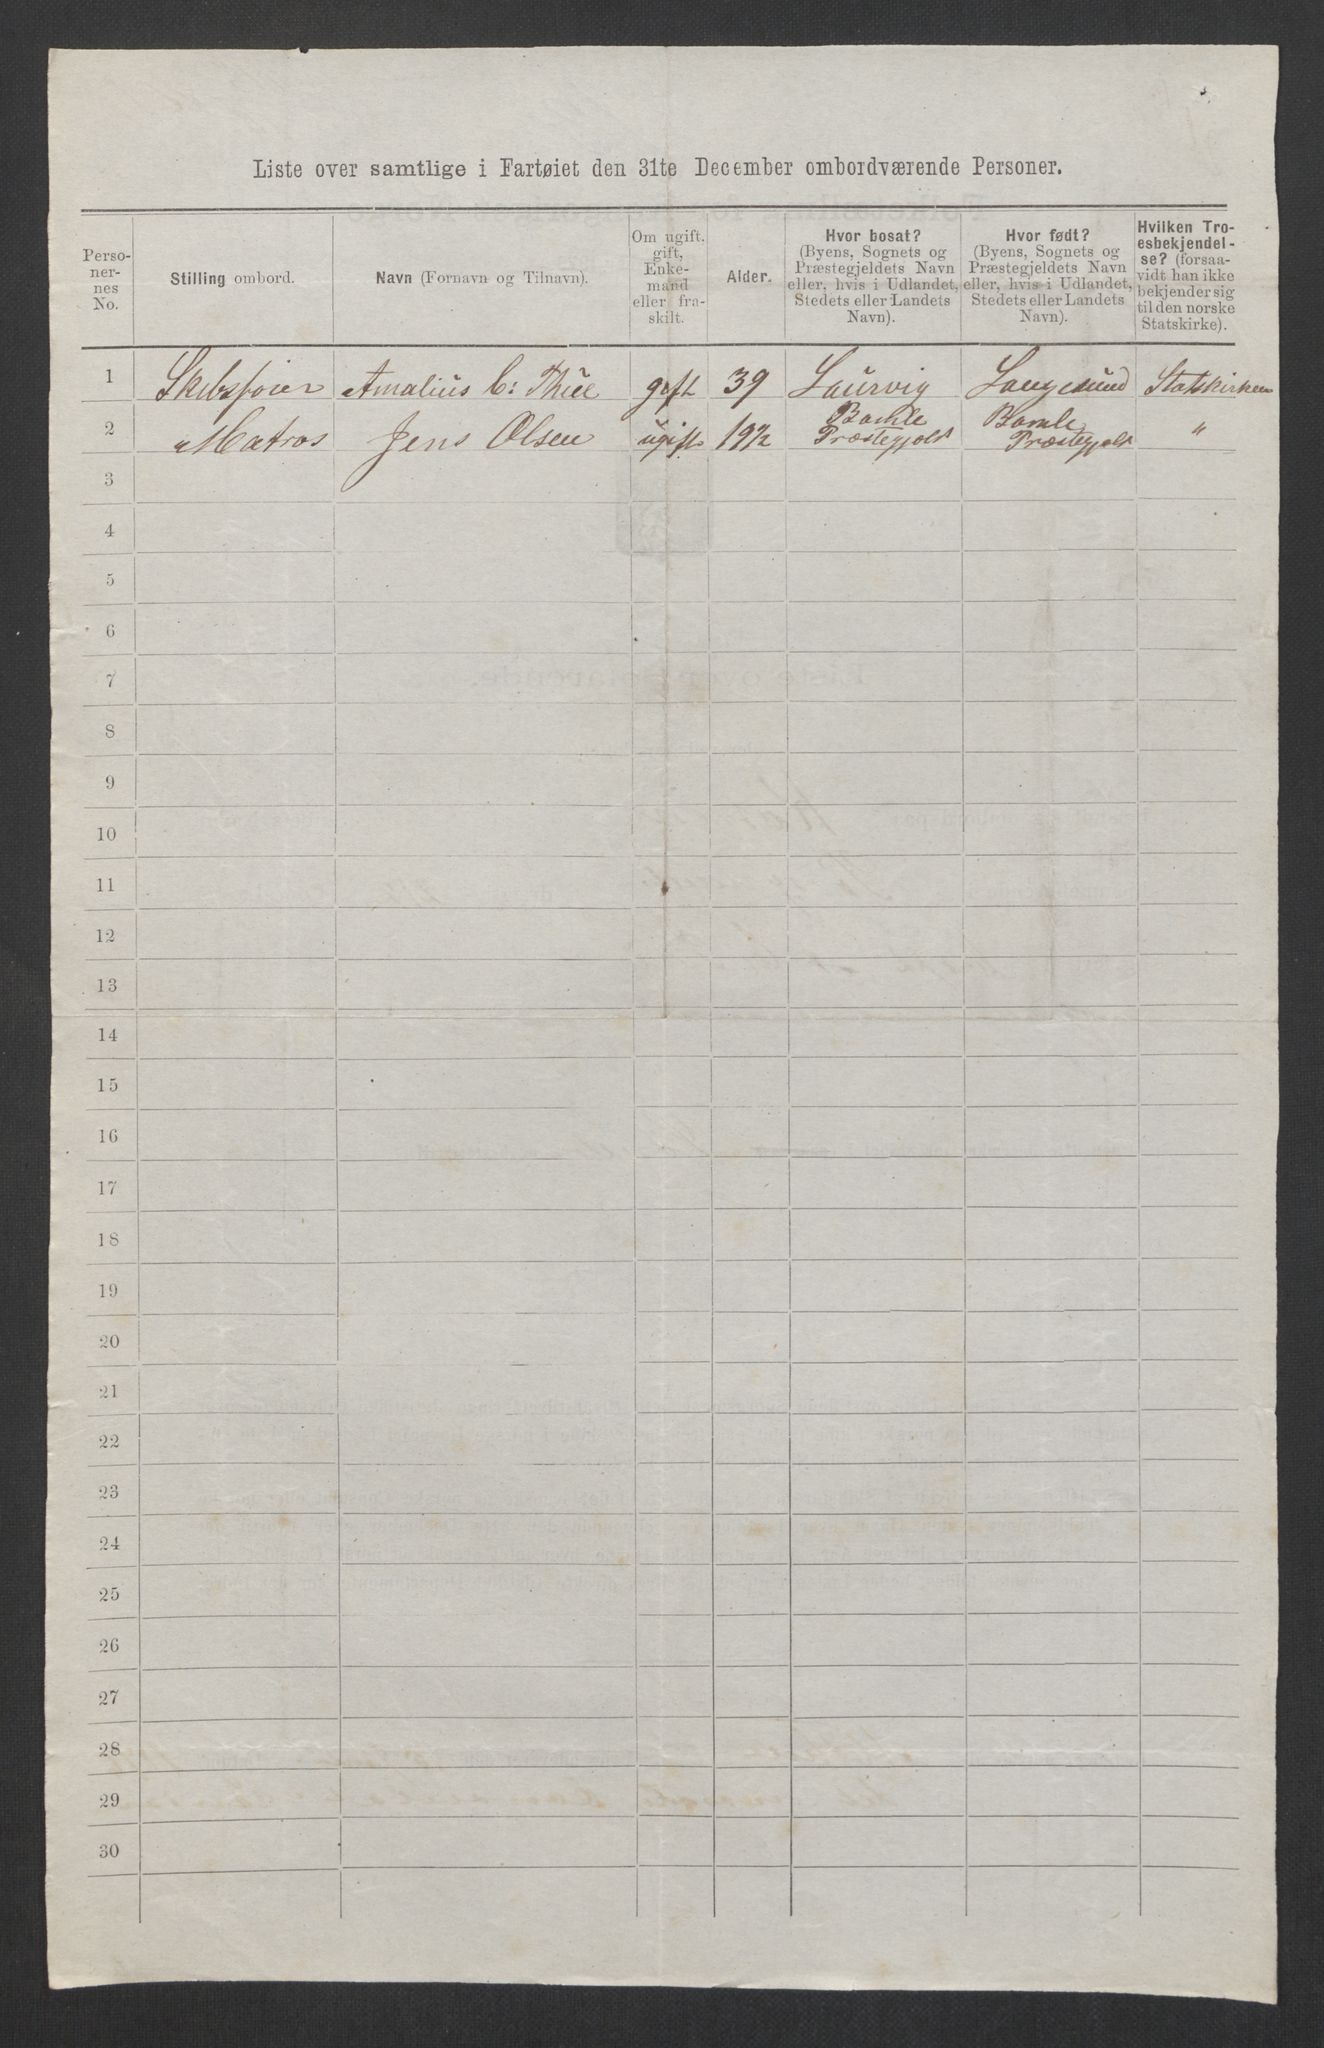 Liste over samtlige i Fartøiet den 31te December ombordværende Personer.
Perso-
ner-
nes
No.
Stilling ombord.
Navn (Fornavn og Tilnavn).
Om ugift,
gift,
Enke-
mand
eller fra-
skilt.
Alder.
Hvor bosat?
(Byens, Sognets og
Præstegjeldets Navn
eller, hvis i Udlandet,
Stedets eller Landets
Navn).
Hvor født?
(Byens, Sognets og
Præstegjeldets Navn
eller, hvis i Udlandet,
Stedets eller Landets
Navn).
Hvilken Tro-
esbekjendel-
se? (forsaa-
vidt han ikke
bekjender sig
til den norske
Statskirke).
1 Skibsfører Amalius C: Thue gift 39 Laurvig Langesund Statskirken
2 Matros Jens Olsen ugift 19½ Bamle Præstegjeld Bamle Præstegjeld "
3
4
5
6
7
8
9
10
11
12
13
14
15
16
17
18
19
20
21
22
23
24
25
26
27
28
29
30